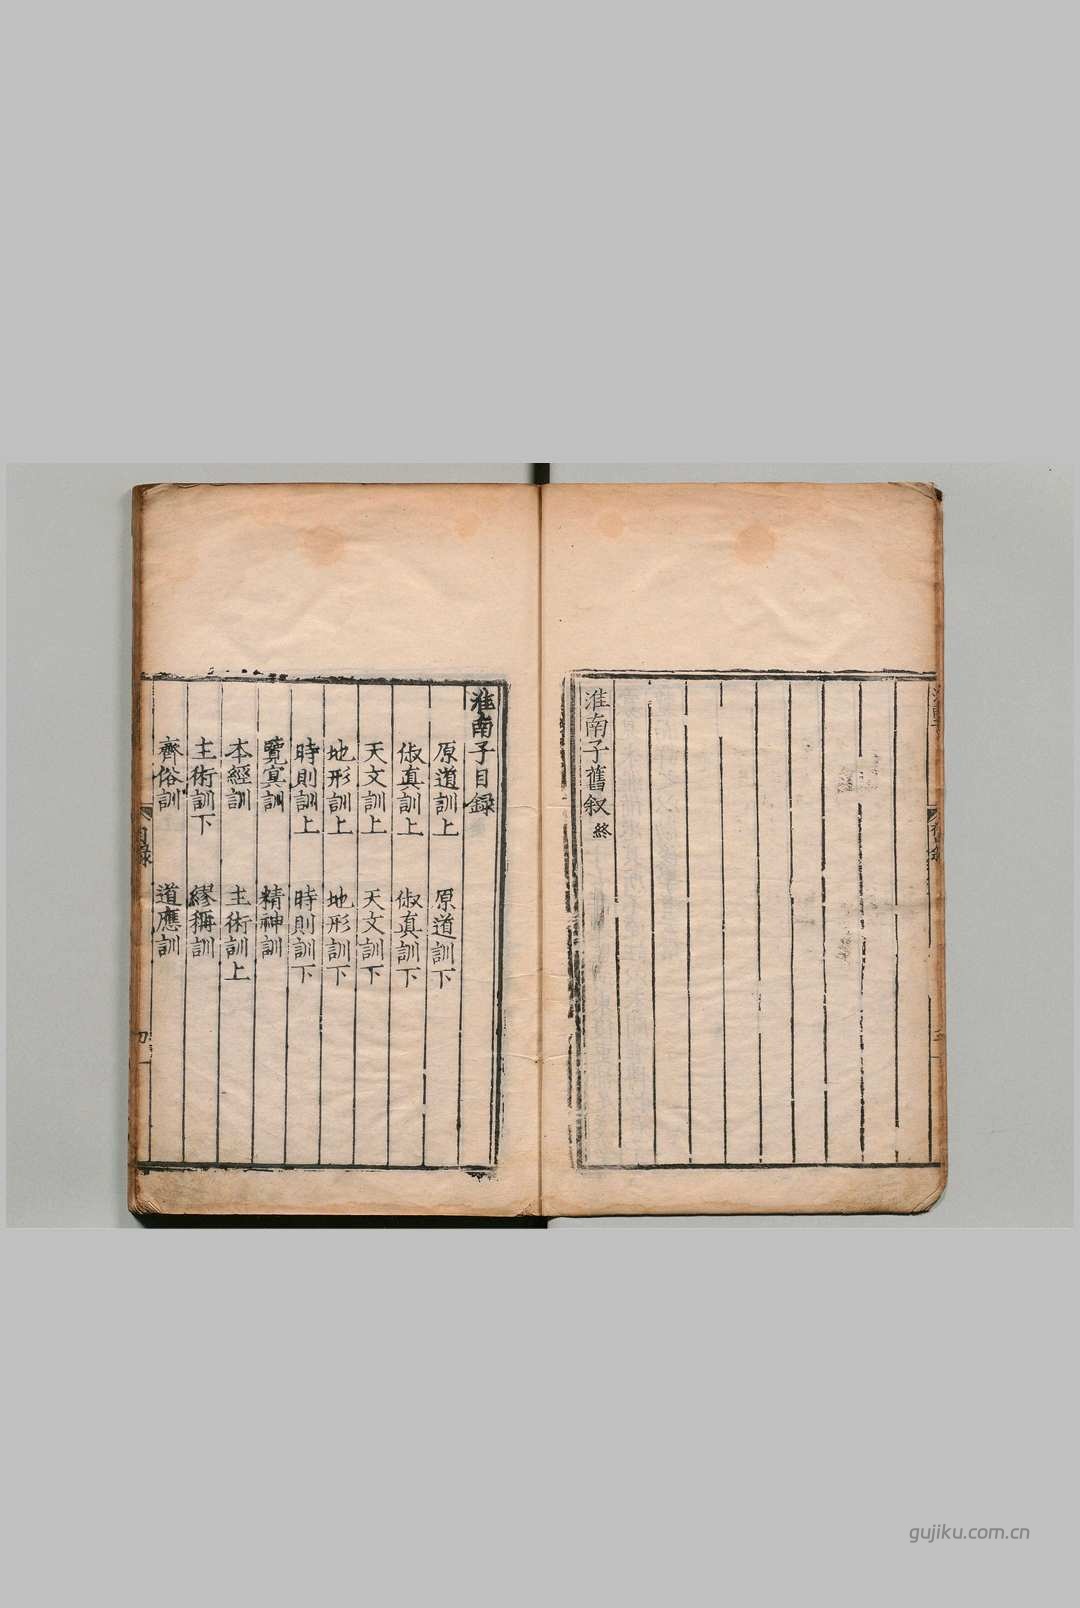 淮南子舊叙終
淮南子目録
原道訓上　原道訓下
俶真訓上　俶真訓下
天文訓上　天文訓下
地形訓上　地形訓下
時則訓上　時則訓下
覽冥訓　精神訓
本經訓　主術訓上
主術訓下　繆稱訓
齊俗訓　道應訓
目録
gujiku.com.cn